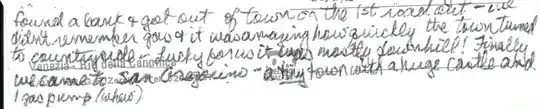 found a bank & got out of town on the 1st road out - we
didnt remember gas & it was amazing how quickly the town turned
to countryside - Lucky for us it was mostly downhill! Finally
we came to San Gregorino - a tiny town with a huge castle and
Venezia - Rio della Canonica
1 gas pump (whew)